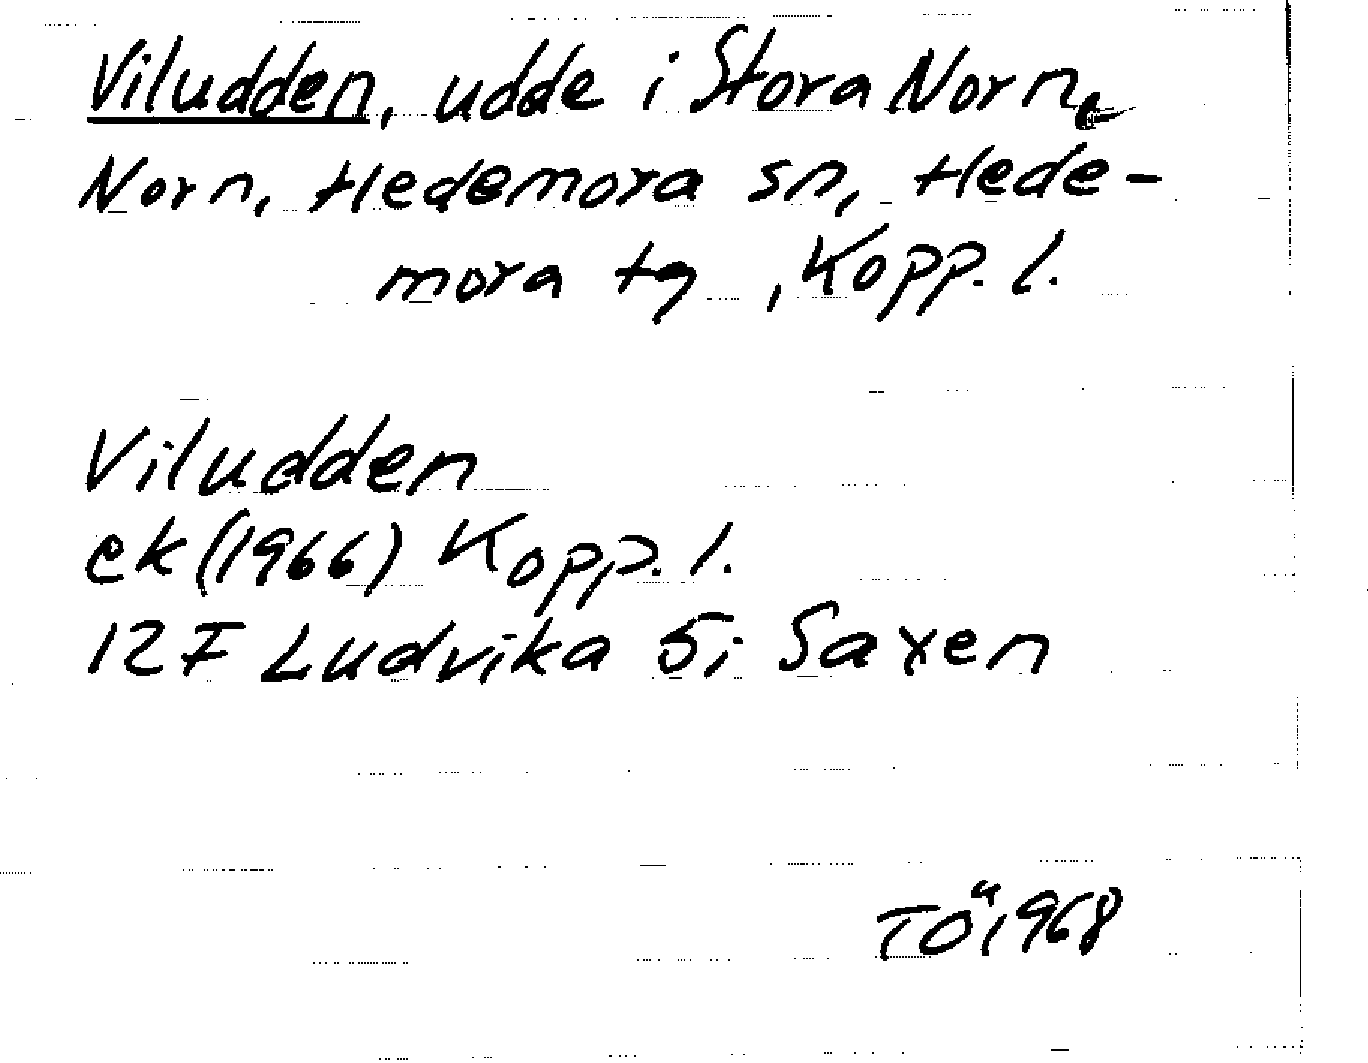 Viludden, udde i Stora Norn,
Norn, Hedemora sn, Hede-
mora tg, Kopp. l.
Viludden
ek (1966) Kopp. l.
12F Ludvika 5i Saxen
TÖ 1968